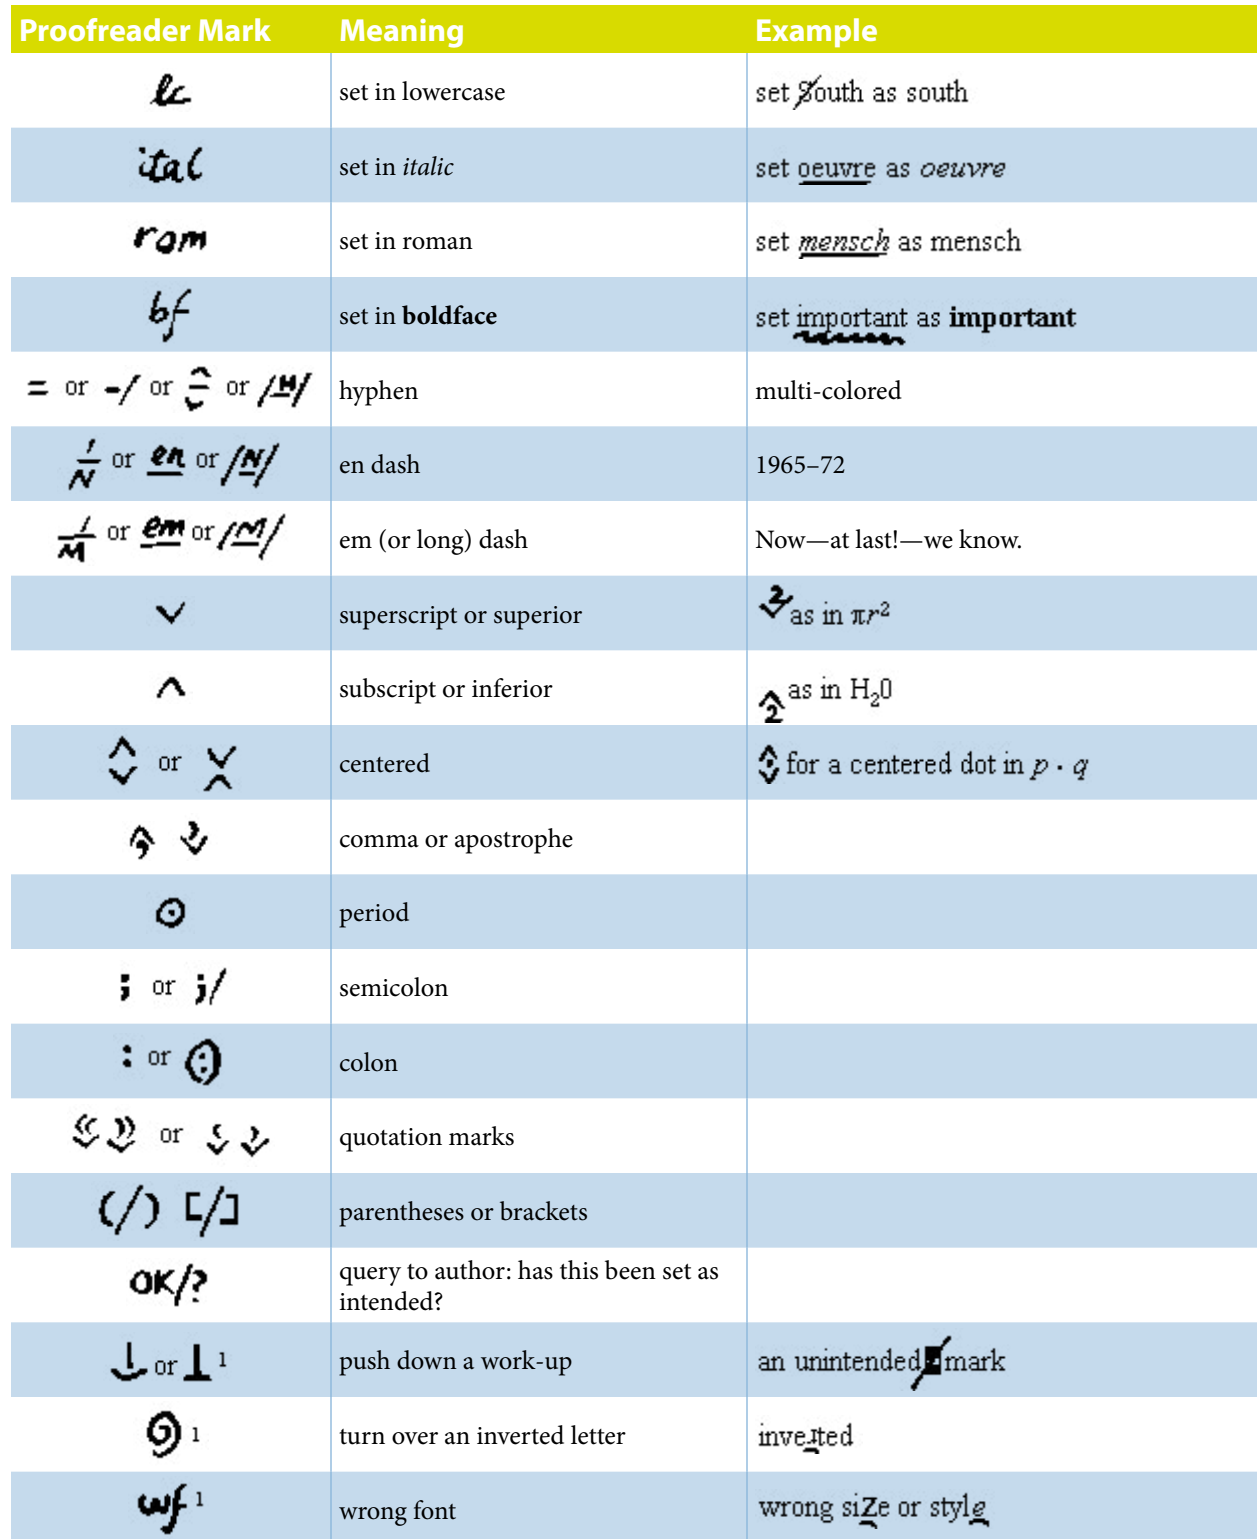 Proofreader Mark Meaning Example
lc set in lowercase set South as south
ital set in italic set oeuvre as oeuvre
rom set in roman set mensch as mensch
bf set in boldface set important as important
= or -/ or = or /H/ hyphen multi-colored
1/N or en or /N/ en dash 1965–72
1/M or em or /M/ em (or long) dash Now—at last!—we know.
∨ superscript or superior 2 as in πr²
∧ subscript or inferior 2 as in H₂0
or centered · for a centered dot in p · q
, ’ comma or apostrophe
⊙ period
; or ;/ semicolon
: or : colon
“ ” or ‘ ’ quotation marks
(/) [/] parentheses or brackets
OK/? query to author: has this been set as
intended?
⊥ or ⊥ 1 push down a work-up an unintended mark
1 turn over an inverted letter inverted
wf 1 wrong font wrong size or style